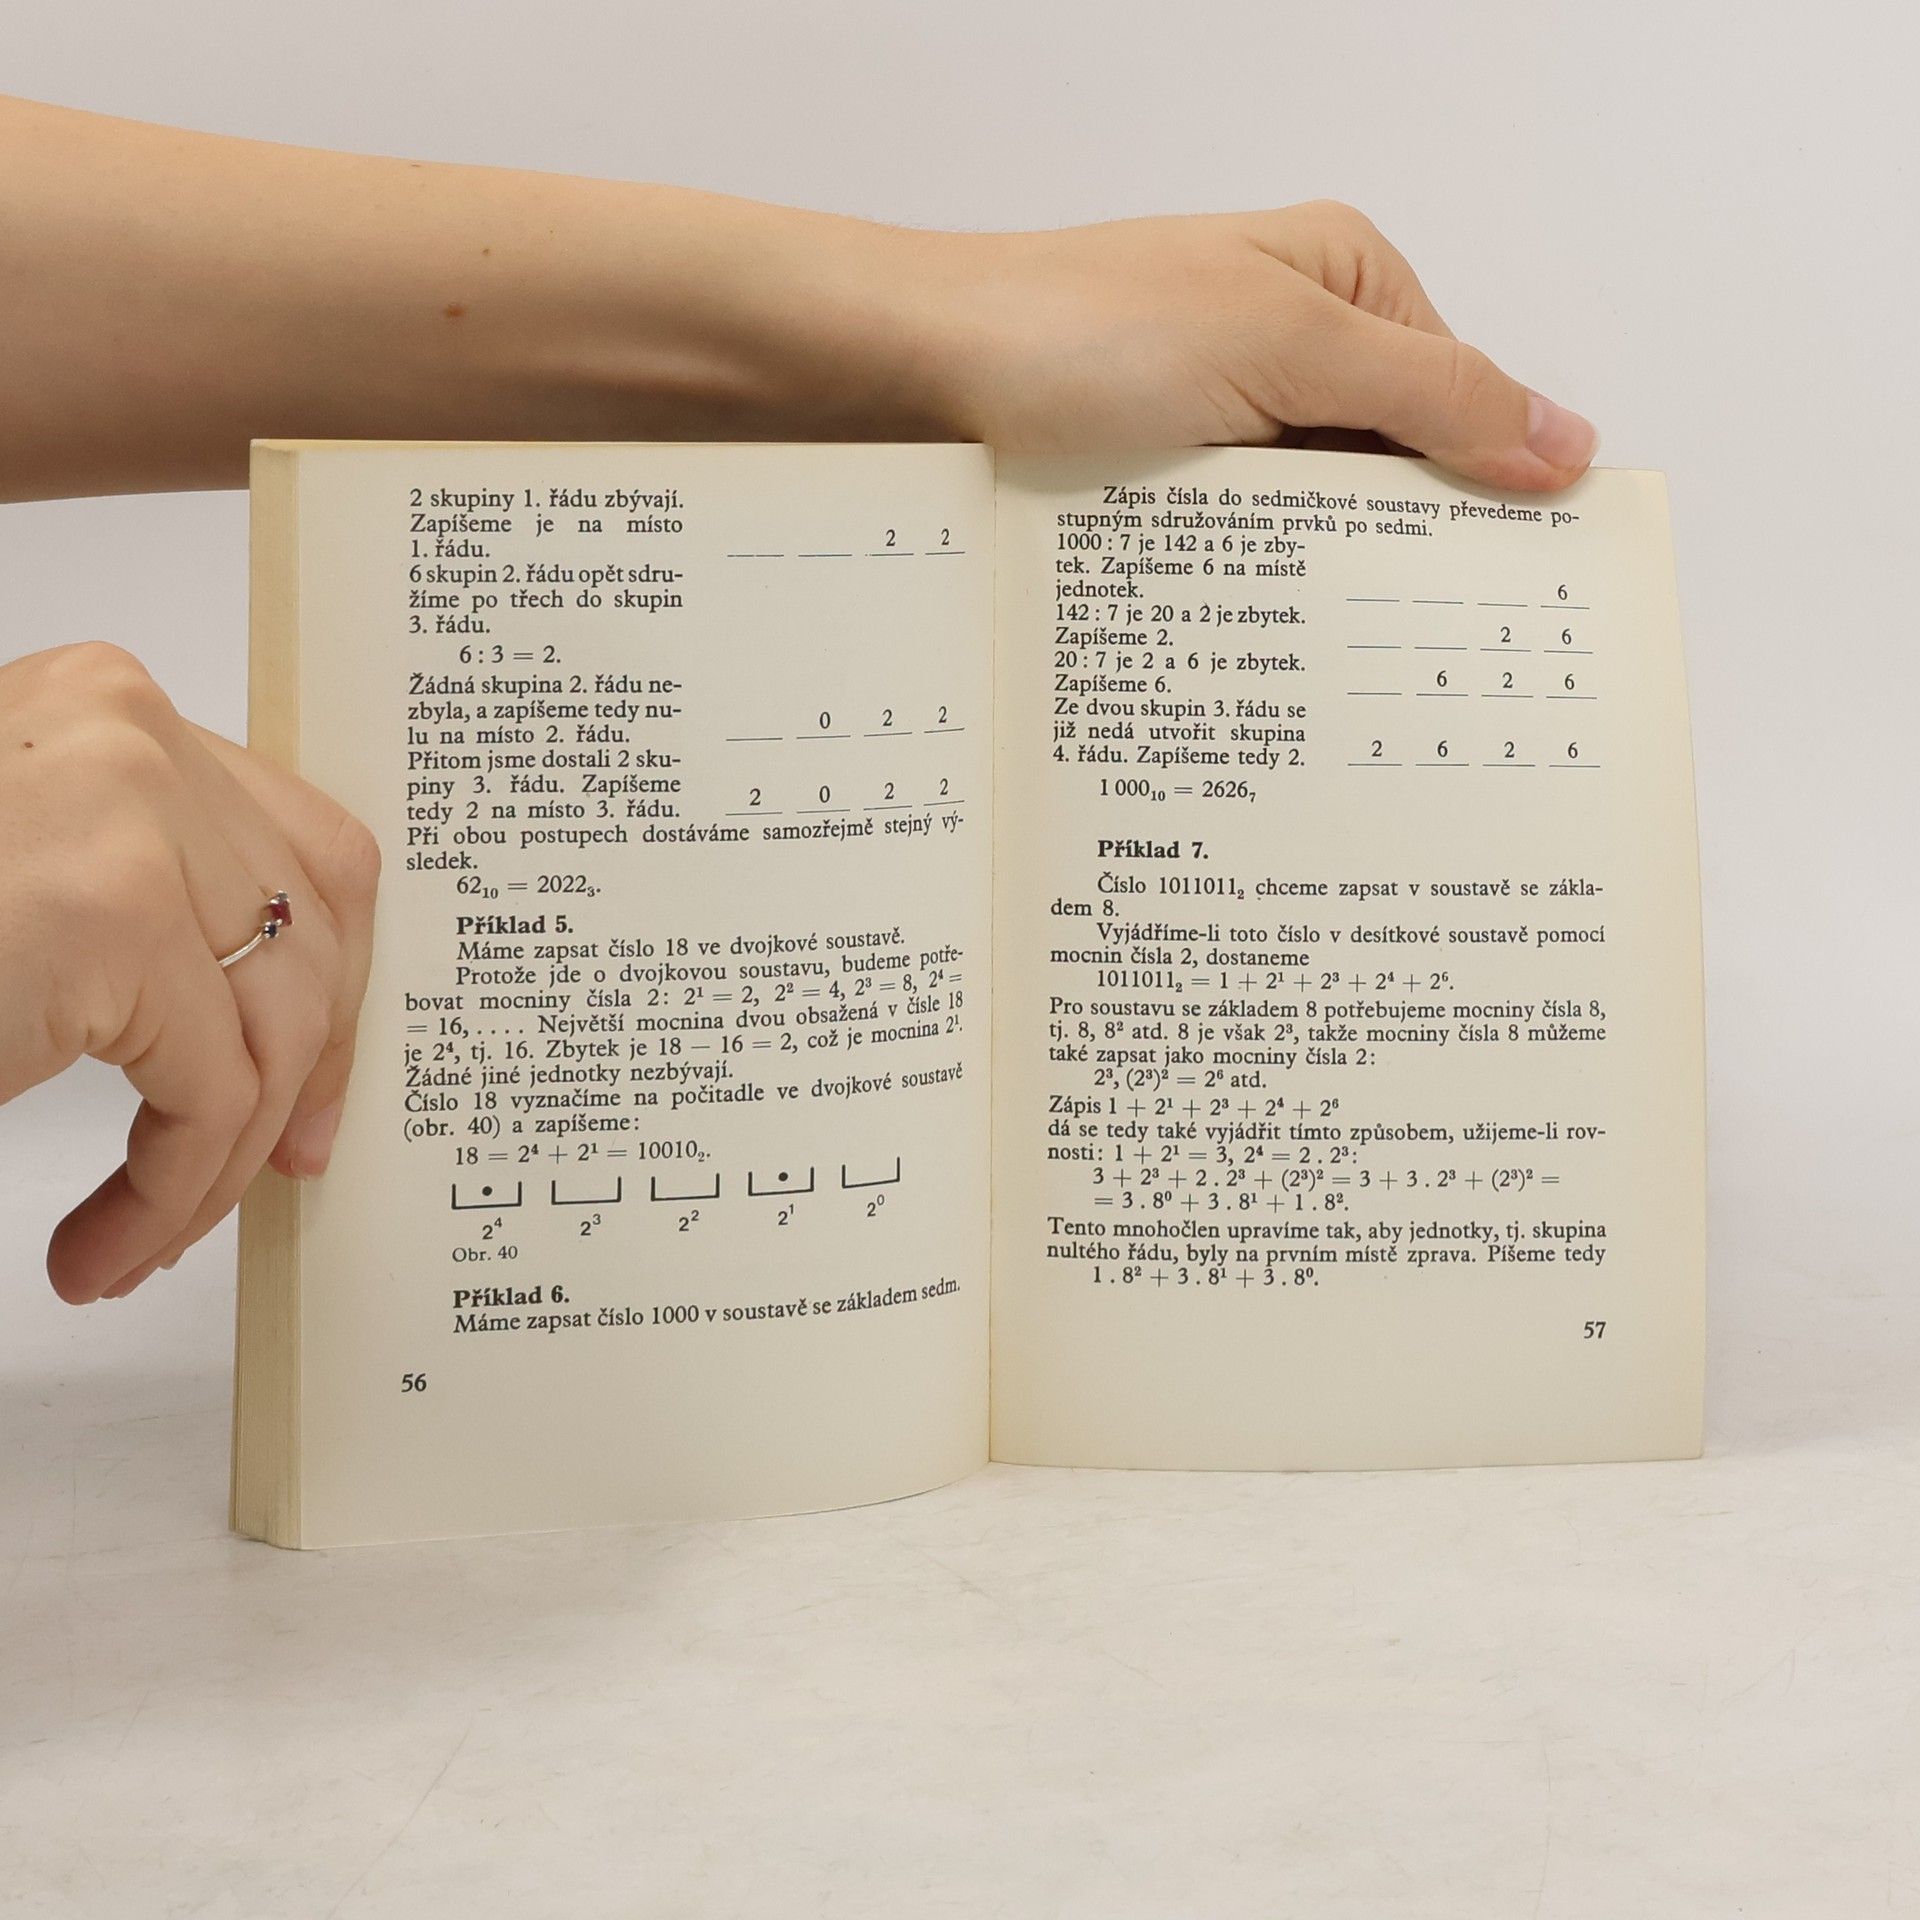 2 skupiny 1. řádu zbývají.
Zapíšeme je na místo
1. řádu.
2 2
6 skupin 2. řádu opět sdru-
žíme po třech do skupin
3. řádu.
6 : 3 = 2.
Žádná skupina 2. řádu ne-
zbyla, a zapíšeme tedy nu-
lu na místo 2. řádu.
0 2 2
Přitom jsme dostali 2 sku-
piny 3. řádu. Zapíšeme
tedy 2 na místo 3. řádu.
2 0 2 2
Při obou postupech dostáváme samozřejmě stejný vý-
sledek.
62₁₀ = 2022₃.
Příklad 5.
Máme zapsat číslo 18 ve dvojkové soustavě.
Protože jde o dvojkovou soustavu, budeme potře-
bovat mocniny čísla 2: 2¹ = 2, 2² = 4, 2³ = 8, 2⁴ =
= 16, . . . . Největší mocnina dvou obsažená v čísle 18
je 2⁴, tj. 16. Zbytek je 18 — 16 = 2, což je mocnina 2¹.
Žádné jiné jednotky nezbývají.
Číslo 18 vyznačíme na počitadle ve dvojkové soustavě
(obr. 40) a zapíšeme:
18 = 2⁴ + 2¹ = 10010₂.
2⁴ 2³ 2² 2¹ 2⁰
Obr. 40
Příklad 6.
Máme zapsat číslo 1000 v soustavě se základem sedm.
56
Zápis čísla do sedmičkové soustavy převedeme po-
stupným sdružováním prvků po sedmi.
1000 : 7 je 142 a 6 je zby-
tek. Zapíšeme 6 na místě
jednotek.
6
142 : 7 je 20 a 2 je zbytek.
Zapíšeme 2.
2 6
20 : 7 je 2 a 6 je zbytek.
Zapíšeme 6.
6 2 6
Ze dvou skupin 3. řádu se
již nedá utvořit skupina
4. řádu. Zapíšeme tedy 2.
2 6 2 6
1 000₁₀ = 2626₇
Příklad 7.
Číslo 1011011₂ chceme zapsat v soustavě se zákla-
dem 8.
Vyjádříme-li toto číslo v desítkové soustavě pomocí
mocnin čísla 2, dostaneme
1011011₂ = 1 + 2¹ + 2³ + 2⁴ + 2⁶.
Pro soustavu se základem 8 potřebujeme mocniny čísla 8,
tj. 8, 8² atd. 8 je však 2³, takže mocniny čísla 8 můžeme
také zapsat jako mocniny čísla 2:
2³, (2³)² = 2⁶ atd.
Zápis 1 + 2¹ + 2³ + 2⁴ + 2⁶
dá se tedy také vyjádřit tímto způsobem, užijeme-li rov-
nosti: 1 + 2¹ = 3, 2⁴ = 2 . 2³:
3 + 2³ + 2 . 2³ + (2³)² = 3 + 3 . 2³ + (2³)² =
= 3 . 8⁰ + 3 . 8¹ + 1 . 8².
Tento mnohočlen upravíme tak, aby jednotky, tj. skupina
nultého řádu, byly na prvním místě zprava. Píšeme tedy
1 . 8² + 3 . 8¹ + 3 . 8⁰.
57